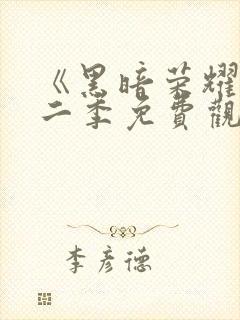 《黑暗荣耀
二季免費觀
李彦德